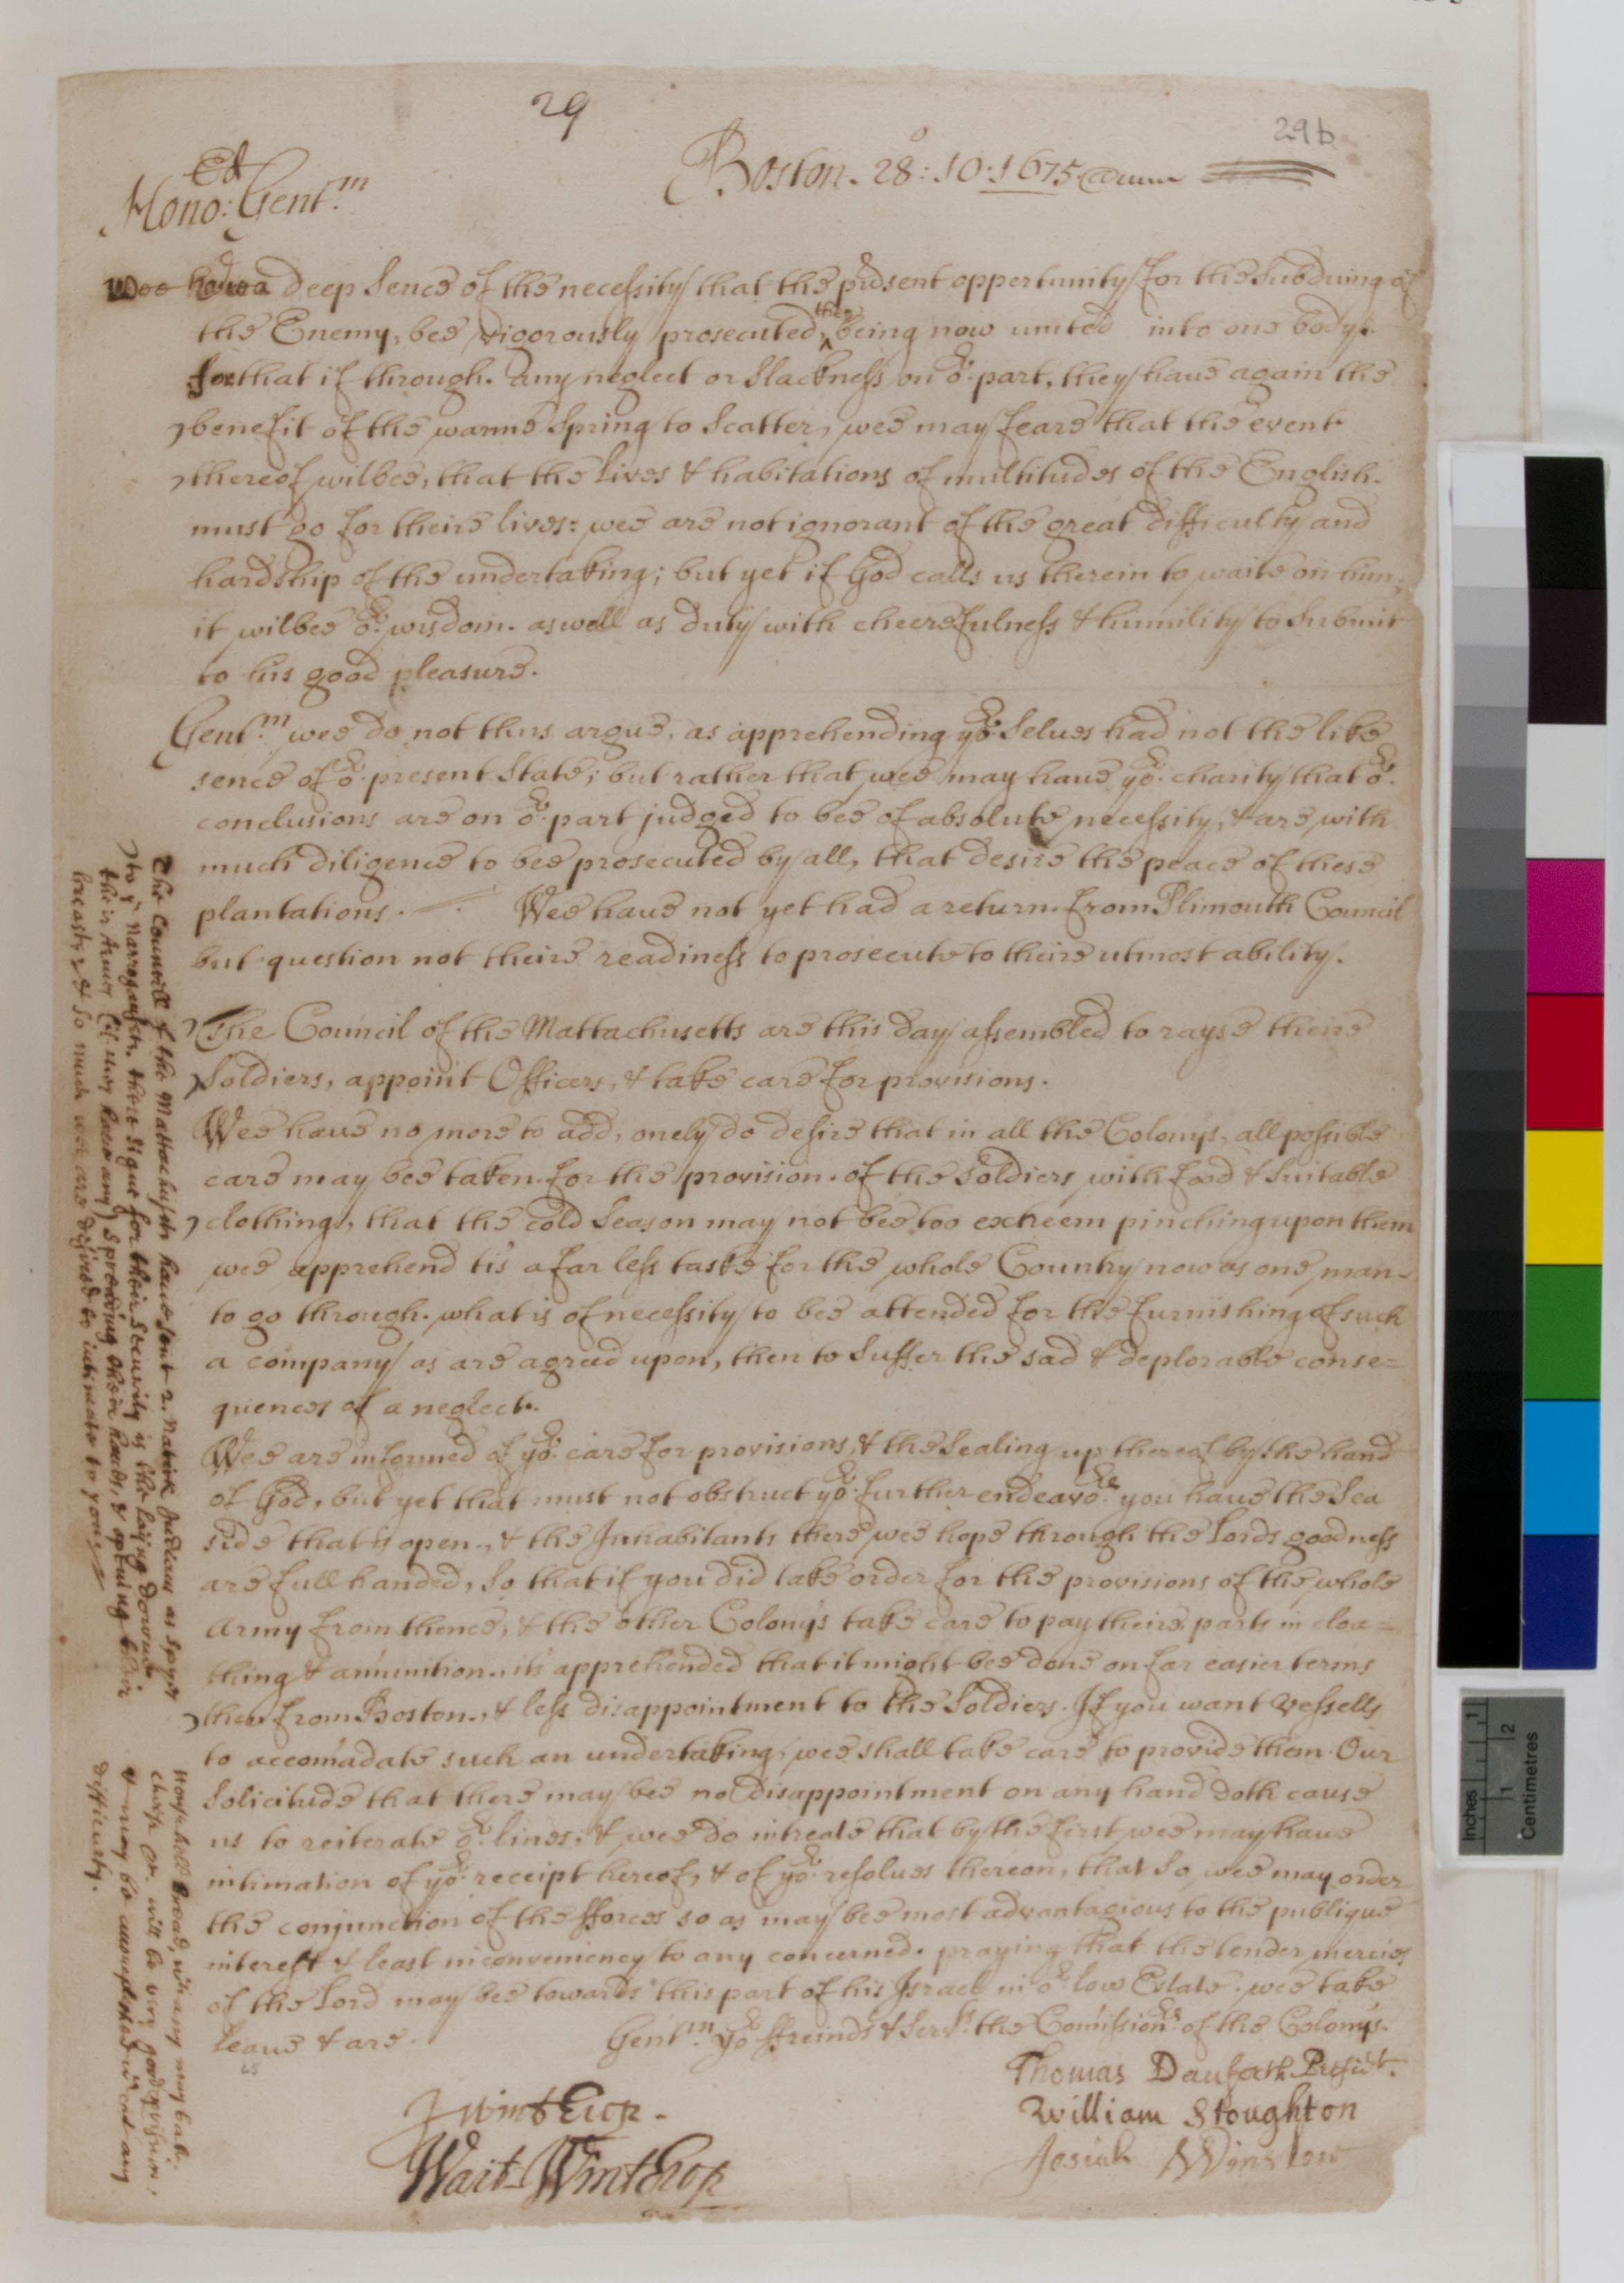 29
29b
Boston. 28: 10: 1675
Hono:ed Gentm
Wee have a deep sence of the necessity that the present oppertunity for the subduing of
the Enemy, bee vigorously prosecuted, they being now united into one body:
for that if through any neglect or slackness on or part, they have again the
benefit of the warme spring to scatter, wee may feare that the event
thereof wilbee, that the lives & habitations of multitudes of the English
must go for theire lives: wee are not ignorant of the great difficulty and
hardship of the undertaking; but yet if God calls us therein to waite on him,
it wilbee or wisdom as well as duty with cheerefulness & humility to submit
to his good pleasure.
Gentm wee do not thus argue, as apprehending yor selues had not the like
sence of or present state; but rather that wee may haue yor charity that or
conclusions are on or part judged to bee of absolute necessity, & are with
much diligence to bee prosecuted by all, that desire the peace of these
plantations. Wee haue not yet had a return from Plimouth Council
but question not theire readiness to prosecute to theire utmost ability.
The Council of the Mattachusetts are this day assembled to rayse theire
Soldiers, appoint Officers, & take care for provisions.
Wee haue no more to add, onely do desire that in all the Colonys, all possible
care may bee taken for the provision of the Soldiers with food & suitable
clothing, that the cold season may not bee too extreem pinching upon them
wee apprehend tis a far less taske for the whole Country now as one man
to go through what is of necessity to bee attended for the furnishing of such
a company as are agreed upon, then to suffer the sad & deplorable conse=
quences of a neglect.
Wee are informed of yor care for provisions, & the sealing up thereof by the hand
of God, but yet that must not obstruct yor further endeavors you haue the Sea
side that is open, & the Inhabitants there wee hope through the Lords goodness
are full handed, so that if you did take order for the provisions of the whole
Army from thence, & the other Colonys take care to pay theire parts in cloa=
thing & amunition, its apprehended that it might bee done on far easier terms
then from Boston, & less disappointment to the Soldiers. If you want vessells
to accomadate such an undertaking, wee shall take care to provide them. Our
solicitude that there may bee no disappointment on any hand doth cause
us to reiterate or lines, & wee do intreate that by the first wee may haue
intimation of yor receipt hereof, & of yor resolues thereon, that so wee may order
the conjunction of the fforces so as may bee most advantagious to the publique
interest & least inconveniency to any concerned. praying that the tender mercies
of the Lord may bee towards this part of his Israel in or low Estate. wee take
leaue & are. Gentm yor ffreinds & Servts the Comissionrs of the Colonys.
Thomas Danforth Presidt.
William Stoughton
Josiah Winslow
J Winthrop.
Wait Winthrop
The Councill of the Mattachusets haue sent 2 Natick Indians as spyes
to ye Narragansets, there signe for their security is the laying downe
their Armes (if they have any) spreading their hands, & opening their
breasts, & so much wee are desired to intimate to you
Household bread, wch any may bake
cheap or will be very good provision,
& may be accomplished wth out any
difficulty.